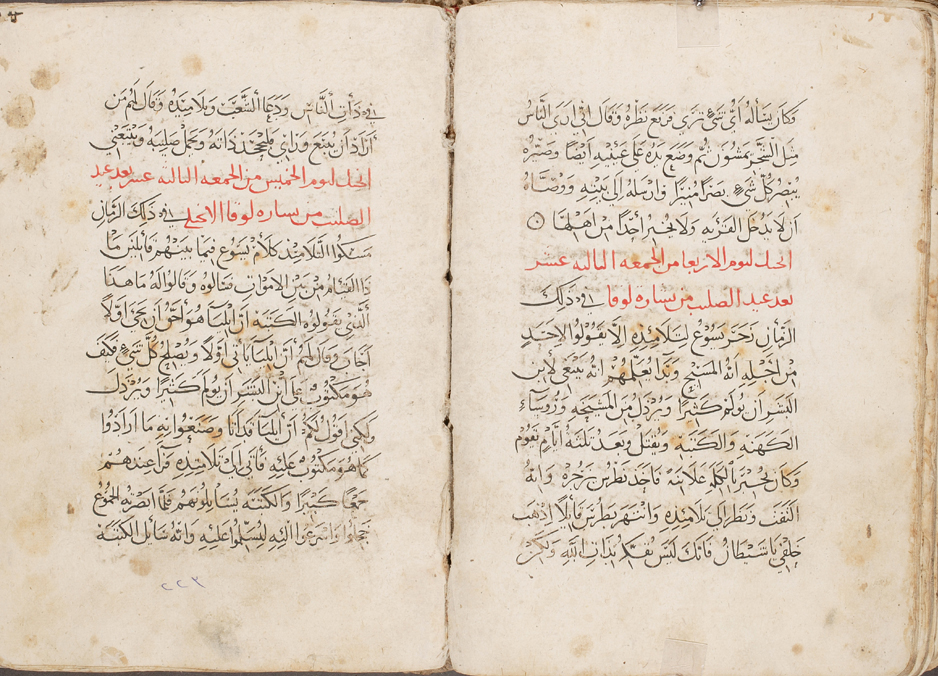 فكان يسأله أي شيء ترى فرفع نظره وقال اني ارى الناس
مثل الشجر يمشون ثم وضع يده على عينيه ايضا وصيره
يبصر كل شيء بصرا منيرا وارسله الى بيته ووصاه
ان لا يدخل القريه ولا يخبر احدا من اهلها
انجيل ليوم الاربعا من الجمعه الثالثه عشر
بعد عيد الصليب من بشاره لوقا في ذلك
الزمان زجر يسوع لتلاميذه الا يقولوا لاحد
من اجله انه المسيح وبدا يعلمهم انه ينبغي لابن
البشر ان يولم كثيرا ويرذل من المشيخه وروساء
الكهنه والكتبه ويقتل وبعد ثلثة ايام يقوم
وكان يخبر بالكلمه علانية فاخذ بطرس يزجره وانه
التفت ونظر الى تلاميذه وانتهر بطرس قايلا اذهب
خلفي يا شيطان فانك ليس تفتكر بذات الله ولكن
في ذات الناس ودعا الشعب وتلاميذه وقال لهم من
اراد ان يتبع ورائي فليجحد ذاته وحمل صليبه ويتبعني
انجيل ليوم الخميس من الجمعه الثالثه عشر بعد عيد
الصليب من بشاره لوقا الانجيلي في ذلك الزمان
مسكوا التلاميذ كلام يسوع فيما بينهم قايلين ما
ذا القيام من بين الاموات فسالوه وقالوا له ما هذا
الذي يقولوه الكتبه ان ايليا هو احق ان يجي اولا
اجاب وقال لهم أن ايليا يأتي اولا ويصلح كل شيء فكيف
هو مكتوب على ابن البشر ان يولم كثيرا ويرذل
ولكني اقول لكم أن ايليا قد اتا وصنعوا به ما ارادوا
كما هو مكتوب عليه فاتى الى تلاميذه فرآ عندهم
جمعا كثيرا والكتبه يسايلونهم فلما ابصرته الجموع
واسرعوا اليه ليسلموا عليه وانه سايل الكتبه
٢٢٣